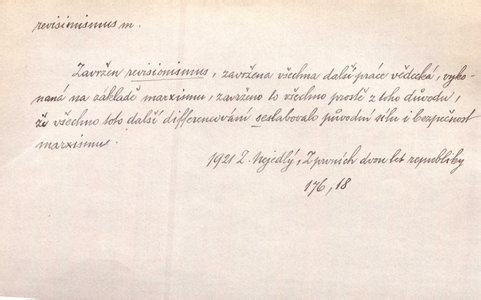 revisionismus m.
Zavržen revisionismus, zavržena všechna další práce vědecká, vyko-
naná na základě marxismu, zavrženo to všechno prostě z toho důvodu,
že všechno toto další differencování seslabovalo původní sílu i bezpečnost
marxismu.
1921 Z. Nejedlý, Z prvních dvou let republiky
176, 18